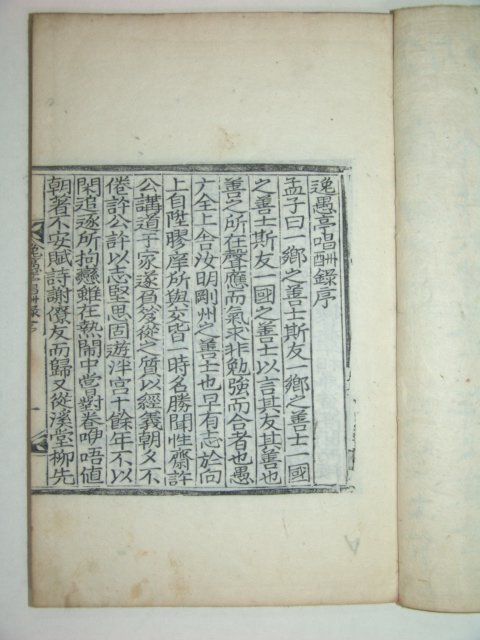 逸愚亭唱酬錄序
孟子曰一鄕之善士斯友一鄕之善士一國
之善士斯友一國之善士以言其友其善也
善之所在聲應而氣求非勉強而合者也愚
广全上舍汝明剛州之善士也早有志於向
上自陞膠庠所與交皆一時名勝聞性齋許
公講道于家遂負笈從之質以經義朝夕不
倦許公許以志堅思固遊泮宮十餘年不以
閑追逐所拘戀雖在熱鬧中常對卷咿唔値
朝著不安賦詩謝僚友而歸又從溪堂柳先